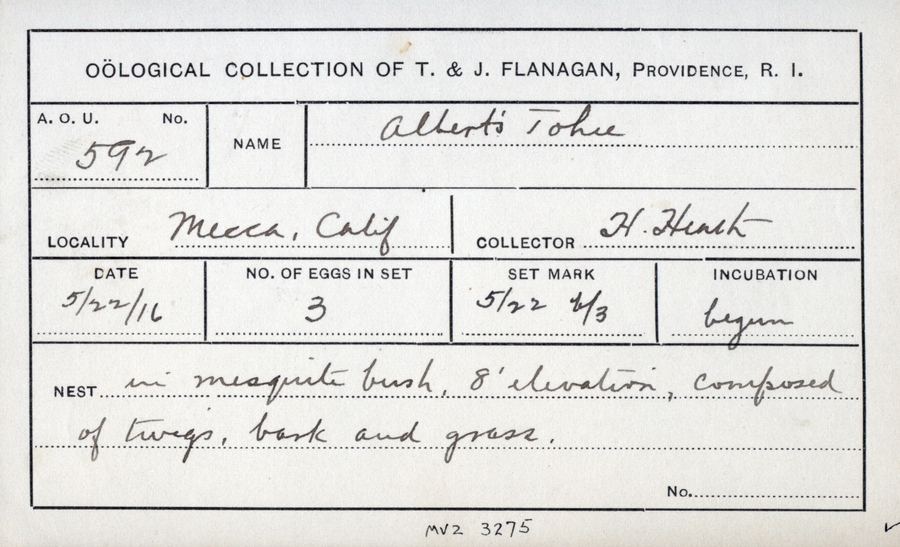 OÖLOGICAL COLLECTION OF T. & J. FLANAGAN, PROVIDENCE, R. I.
A. O. U. No. 592
NAME Albert's Tohee
LOCALITY Mecca, Calif
COLLECTOR H. Heath
DATE 5/22/16
NO. OF EGGS IN SET 3
SET MARK 5/22 b/3
INCUBATION begun
NEST in mesquite bush, 8' elevation, composed
of twigs, bark and grass.
No.
MVZ 3275